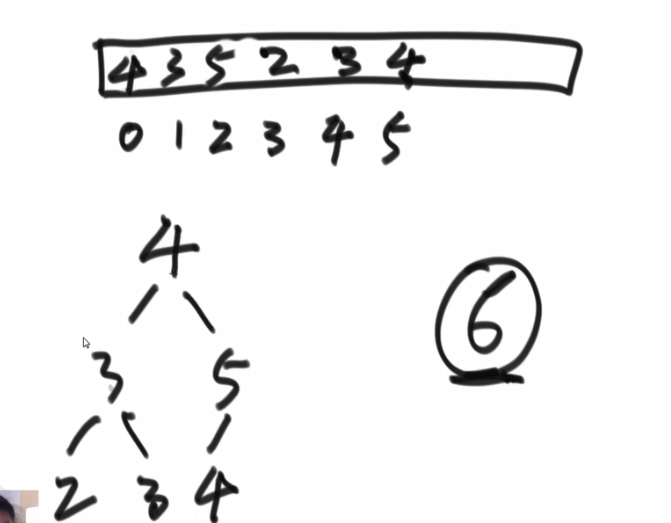 4 3 5 2 3 4
0 1 2 3 4 5
4
6
3 5
2 3 4